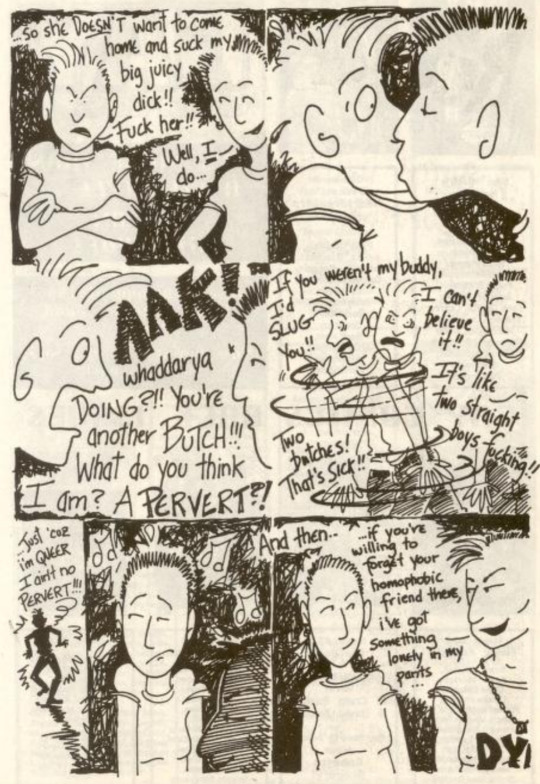 ...so she DOESN'T want to come
home and suck my
big juicy
dick!!
Fuck her!!
Well, I
do...
AAK!
whaddarya
DOING?!! You're
another BUTCH!!!
What do you think
I am? A PERVERT?!
If you weren't my buddy,
I'd
SLUG
you!!
I can't
believe
it!!
It's like
two straight
boys fucking!!
Two
butches!
That's sick!!
...Just 'cuz
i'm QUEER
I ain't no
PERVERT!!!
And then..
...if you're
willing to
forget your
homophobic
friend there,
i've got
something
lonely in my
pants
...
DY